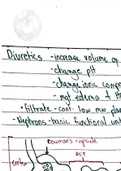 Diuretics - increase volume of
- change pH
- change ionic comp
- mgt edema +
- filtrate - cont. low mw plas
- Nephrons - basic functional unit
Bowman's capsule
PCT
Cortex